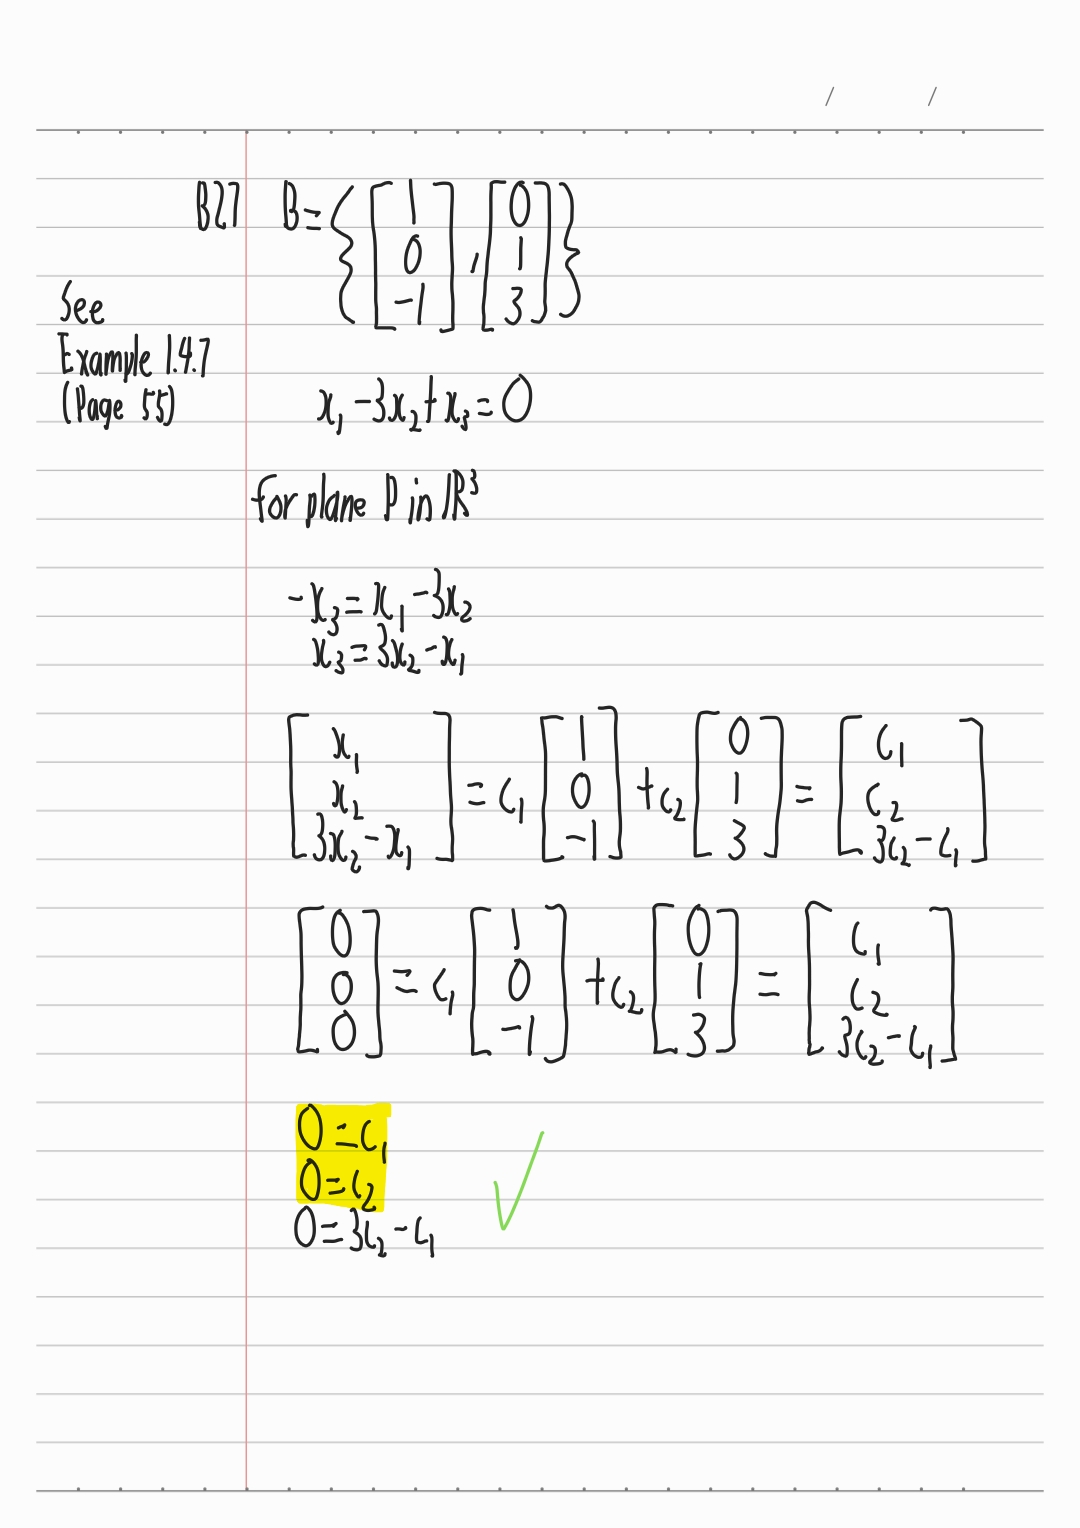 / /
B27 B = { [1 0 -1], [0 1 3] }
See
Example 1.4.7
(Page 55)
x₁ - 3x₂ + x₃ = 0
for plane P in ℝ³
-x₃ = x₁ - 3x₂
x₃ = 3x₂ - x₁
[x₁ x₂ 3x₂ - x₁] = c₁ [1 0 -1] + c₂ [0 1 3] = [c₁ c₂ 3c₂ - c₁]
[0 0 0] = c₁ [1 0 -1] + c₂ [0 1 3] = [c₁ c₂ 3c₂ - c₁]
0 = c₁
0 = c₂ ✓
0 = 3c₂ - c₁